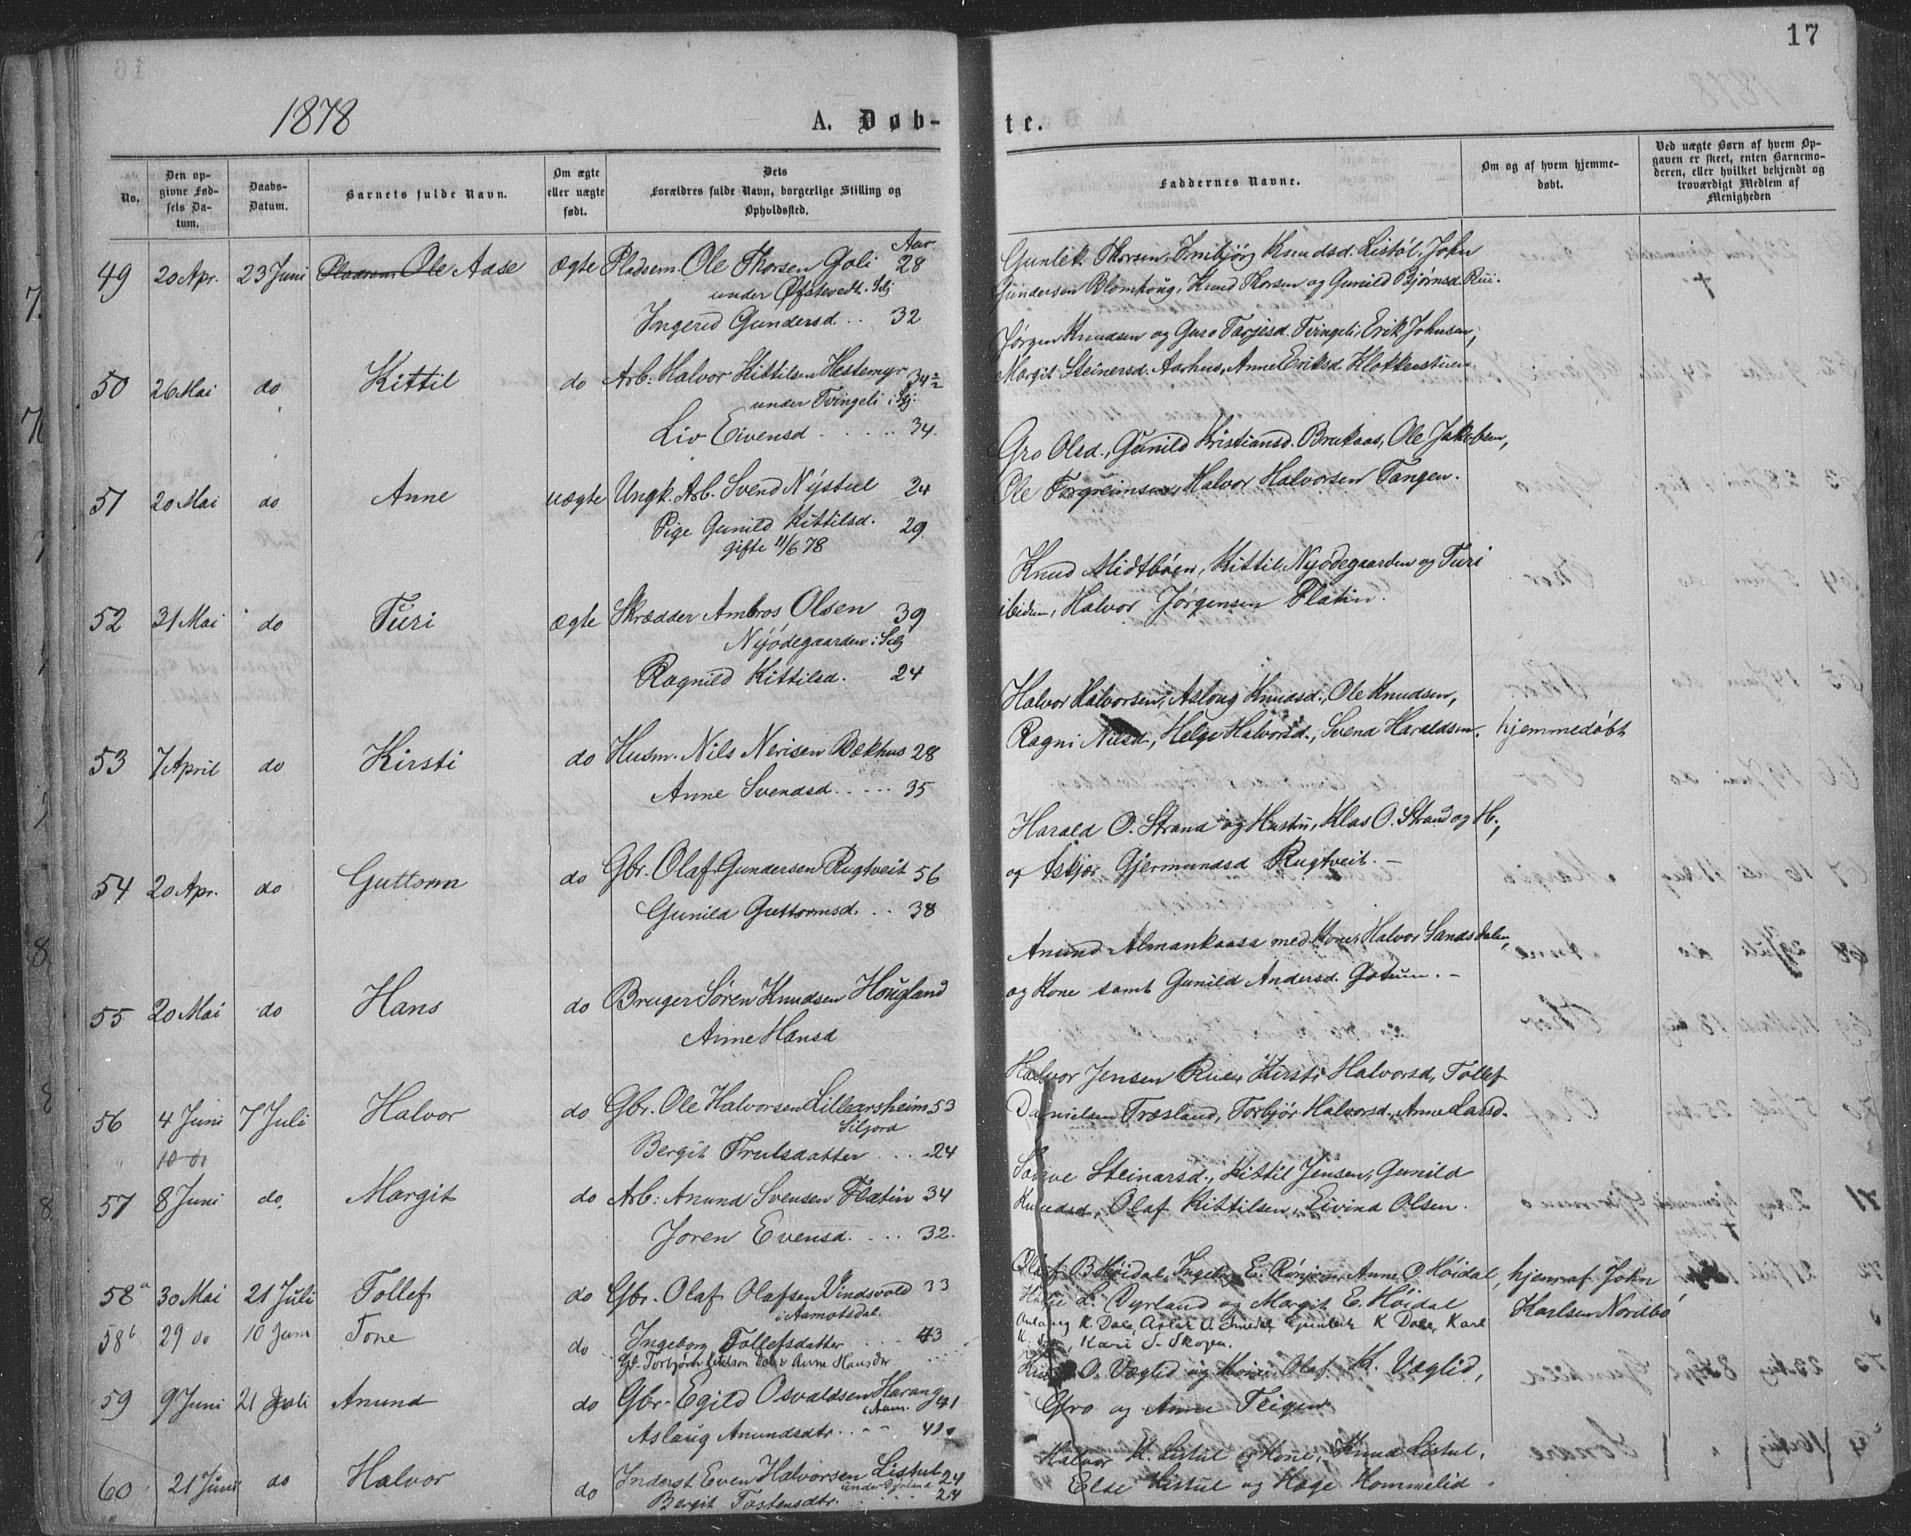 17
1878
A. Døb-
te.
No.
Den op-
givne Fød-
sels Da-
tum.
Daabs-
Datum.
Barnets fulde Navn.
Om ægte
eller uægte
født.
Dets
Forældres fulde Navn, borgerlige Stilling og
Opholdssted.
Faddernes Navne.
Om og af hvem hjemme-
døbt.
Ved uægte Børn af hvem Op-
gaven er skeet, enten Barnemo-
deren, eller hvilket bekjendt og
troværdigt Medlem af
Menigheden
49 20 Apr. 23 Juni Ole Aase ægte Pladsem. Ole Thorsen Goli Aar 28
under Øfstevedt. Selj
Ingerid Gundersd. .. 32
Gunlek Thorsen, Ingebjørg Knudsd. Listøl, John
Gundersen Blomhoug, Knud Thorsen og Gunild Bjørnsd. Rui.
50 26 Mai do Kittil do Arb: Halvor Kittilsen Hestemyr 34½
under Tvingeli i Selj.
Liv Eivensd ..... 34.
Jørgen Knudsen og Guro Tarjesd. Tvingeli, Erik Johnsen,
Margit Steinersd. Aarhus, Anne Eriksd. Klokkerstuen.
51 20 Mai do Anne uægte Ungk. Arb. Svend Nystul 24
Pige Gunild Kittilsd. 29.
gifte 11/6 78
Gro Olsd., Gunild Kristiansd. Brukaas, Ole Jakobsen,
Ole Torgreimsen, Halvor Halvorsen Tangen.
52 31 Mai do Turi ægte Skrædder Ambros Olsen 39
Nyødegaarden i Selj
Ragnild Kittilsd. 24
Knud Midtbøen, Kittil Nyødegaarden og Turi
ibidem, Halvor Jørgensen Flatin.
53 7 April do Kirsti do Husm. Nils Nerisen Bækhus 28
Anne Svendsd ..... 35
Halvor Halvorsen, Asloug Knudsd., Ole Knudsen,
Ragni Nilsd., Helge Halvorsd., Svend Haraldsen. hjemmedøbt
54 20 Apr. do Guttorm do Gbr. Olaf Gundersen Rugtveit 56
Gunild Guttormsd. .. 38
Harald O. Strand og Hustru, Klas O. Strand og H.,
og Askjer Gjermundsd Rugtveit. —
55 20 Mai do Hans do Bruger Søren Knudsen Hougland
Anne Hansd
Anund Almankaasa med Kone, Halvor Sandsdalen,
og Kone samt Gunild Andersd. Gotuun. —
56 4 Juni 7 Juli Halvor do Gbr. Ole Halvorsen Lillearsheim 53
10 do
Siljord
Bergit Trulsdatter .... 24
Halvor Jensen Rue, Kirsti Halvorsd, Tollef
Danielsen Træsland, Torbjør Halvorsd., Anne Larsd.
57 8 Juni do. Margit do Arb: Anund Svensen Flatin 34
Joren Evensd. ... 32.
Solvve Steinarsd., Kittil Jensen, Gunild
Knudsd, Olaf Kittilsen, Eivind Olsen.
58a 30 Mai 21 Juli Tollef do Gbr. Olaf Olafsen Vindsvold 33
i Aamotsdal.
Ingeborg Tollefsdatter ... 43
Olaf B. Høidal, Ingeborg E. Rønjom, Anne O Høidal,
L. Dyrland og Margit E. Høidal
hjem. af John
Karlsen Nordbø
58b 29 do 10 Juni Tone do
Gbr. Torbjørn Kittelsen Dale Anne Hansdr
Aslaug K Dale, Aslak O. K Dale, Karl
Kari S. Skogen.
59 9 Juni 21 Juli Anund do Gbr. Egild Osvaldsen Harang 41
i Aam.
Aslaug Anundsdtr. .. 40
O. Vaglid og Kone, Olaf K. Vaglid,
Gro og Anne Teigen
60 21 Juni do Halvor do Inderst Even Halvorsen Listul 24
under Dyrland
Bergit Tostensdtr. ..... 24
Halvor K. Listul og Kone, Knud Listul,
Else Listul og Hæge Hommelid.